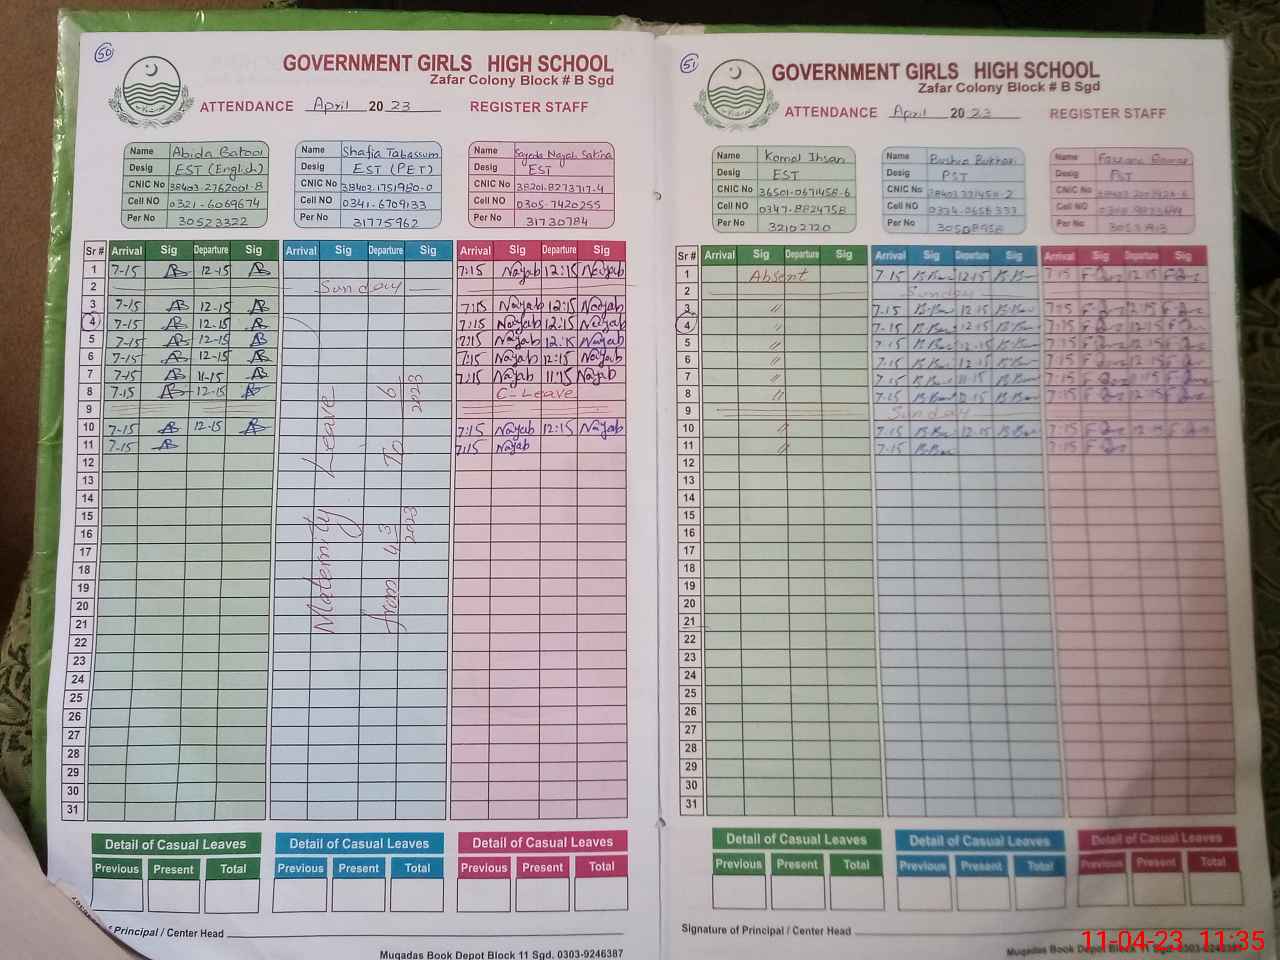 50
GOVERNMENT GIRLS HIGH SCHOOL
Zafar Colony Block # B Sgd
ATTENDANCE April 2023 REGISTER STAFF
Name Abida Batool
Desig EST (English)
CNIC No 38403-2762001-8
Cell NO 0321-6069674
Per No 30523322
Name Shafia Tabassum
Desig EST (PET)
CNIC No 38403-1751980-0
Cell NO 0341-6709133
Per No 31775962
Name Sayeda Nayab Sakina
Desig EST
CNIC No 38201-8273717-4
Cell NO 0305-7420255
Per No 31730784
Sr # Arrival Sig Departure Sig Arrival Sig Departure Sig Arrival Sig Departure Sig
1 7-15 AB 12-15 AB 7:15 Nayab 12:15 Nayab
2 Sunday
3 7-15 AB 12-15 AB 7:15 Nayab 12:15 Nayab
4 7-15 AB 12-15 AB 7:15 Nayab 12:15 Nayab
5 7-15 AB 12-15 AB 7:15 Nayab 12:15 Nayab
6 7-15 AB 12-15 AB 7:15 Nayab 12:15 Nayab
7 7-15 AB 11-15 AB 7:15 Nayab 11:15 Nayab
8 7-15 AB 12-15 AB C-Leave
9
10 7-15 AB 12-15 AB 7:15 Nayab 12:15 Nayab
11 7-15 AB 7:15 Nayab
12
13
14
15
16
17
18
19
20
21
22
23
24
25
26
27
28
29
30
31
Maternity Leave
from 4 3 2023 To 6 2023
Detail of Casual Leaves Detail of Casual Leaves Detail of Casual Leaves
Previous Present Total Previous Present Total Previous Present Total
of Principal / Center Head
Muqadas Book Depot Block 11 Sgd. 0303-9246387
51
GOVERNMENT GIRLS HIGH SCHOOL
Zafar Colony Block # B Sgd
ATTENDANCE April 2023 REGISTER STAFF
Name Komal Ihsan
Desig EST
CNIC No 36501-0671458-6
Cell NO 0347-8824758
Per No 32102720
Name Bushra Bukhari
Desig PST
CNIC No
Cell NO
Per No
Name
Desig PST
CNIC No
Cell NO
Per No
Sr # Arrival Sig Departure Sig Arrival Sig Departure Sig Arrival Sig Departure Sig
1 Absent 7-15 12-15 7:15 12:15
2 Sunday
3 〃 7-15 12-15 7:15 12:15
4 〃 7-15 12-15 7:15 12:15
5 〃 7-15 12-15 7:15 12:15
6 〃 7-15 12-15 7:15 12:15
7 〃 7-15 11-15 7:15 11:15
8 〃 7-15 12-15 7:15 12:15
9 Sunday
10 〃 7-15 12-15 7:15 12:15
11 〃 7-15 7:15
12
13
14
15
16
17
18
19
20
21
22
23
24
25
26
27
28
29
30
31
Detail of Casual Leaves Detail of Casual Leaves Detail of Casual Leaves
Previous Present Total Previous Present Total Previous Present Total
Signature of Principal / Center Head
Muqadas Book Depot Block 11 Sgd. 0303-9246387
11-04-23 11:35